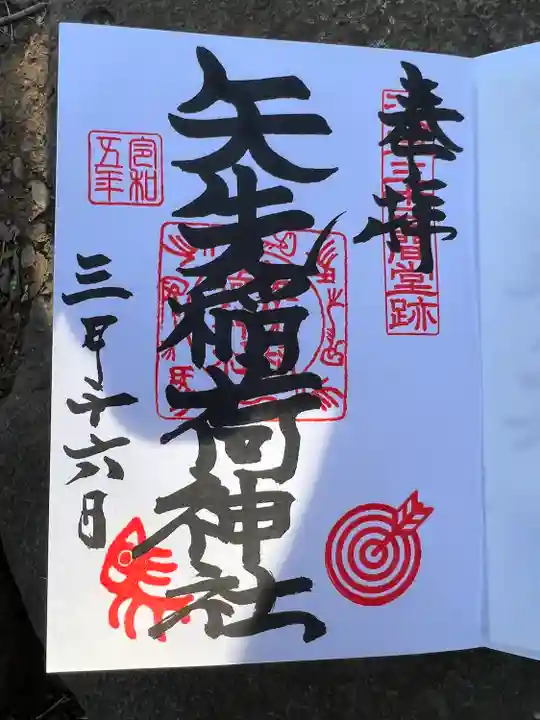 奉拝
間堂跡
矢先稲荷神社
令和
五年
三月十六日